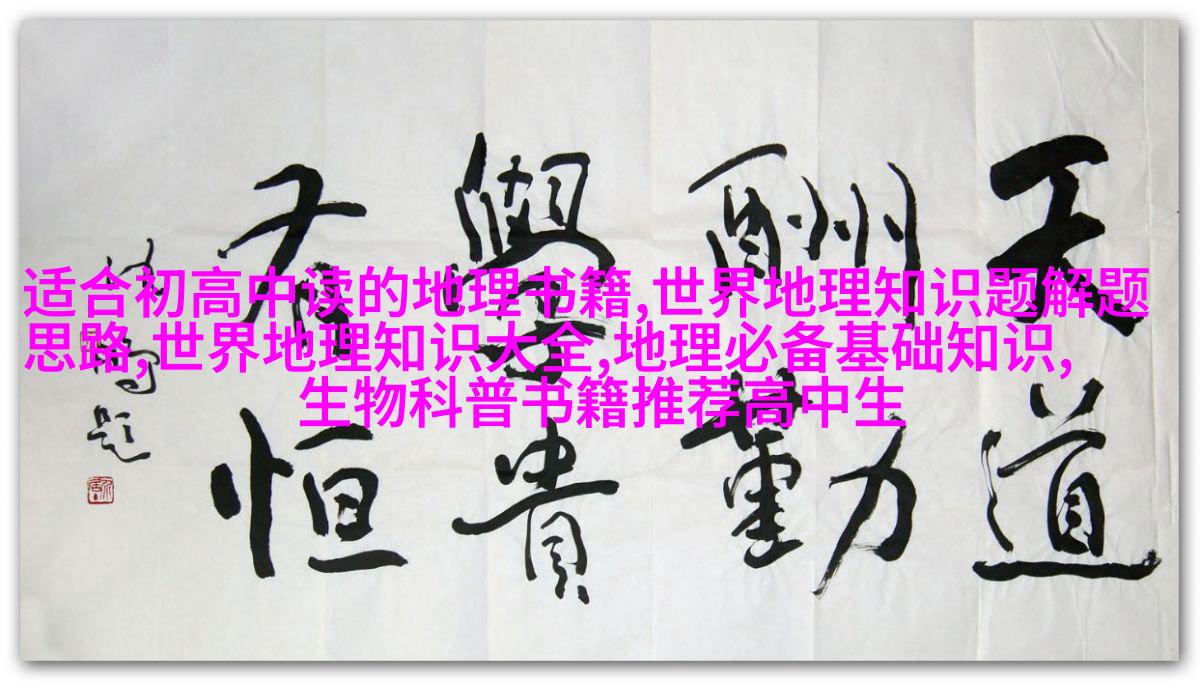 适合初高中读的地理书籍,世界地理知识题解题
思路,世界地理知识大全,地理必备基础知识,
生物科普书籍推荐高中生
天道
酬勤
學貴
有恒
题